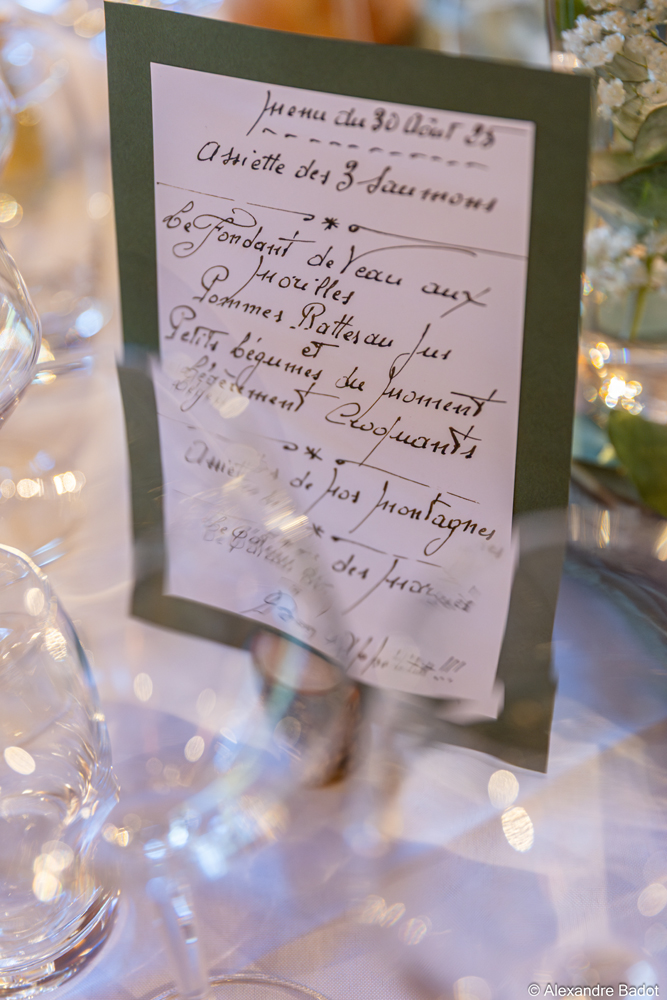 Menu du 30 Août 25
Assiette des 3 Saumons
Le Fondant de Veau aux
Morilles
Pommes Rattes au Jus
et
Petits Légumes du Moment
Légèrement Croquants
de Nos Montagnes
des
© Alexandre Badot